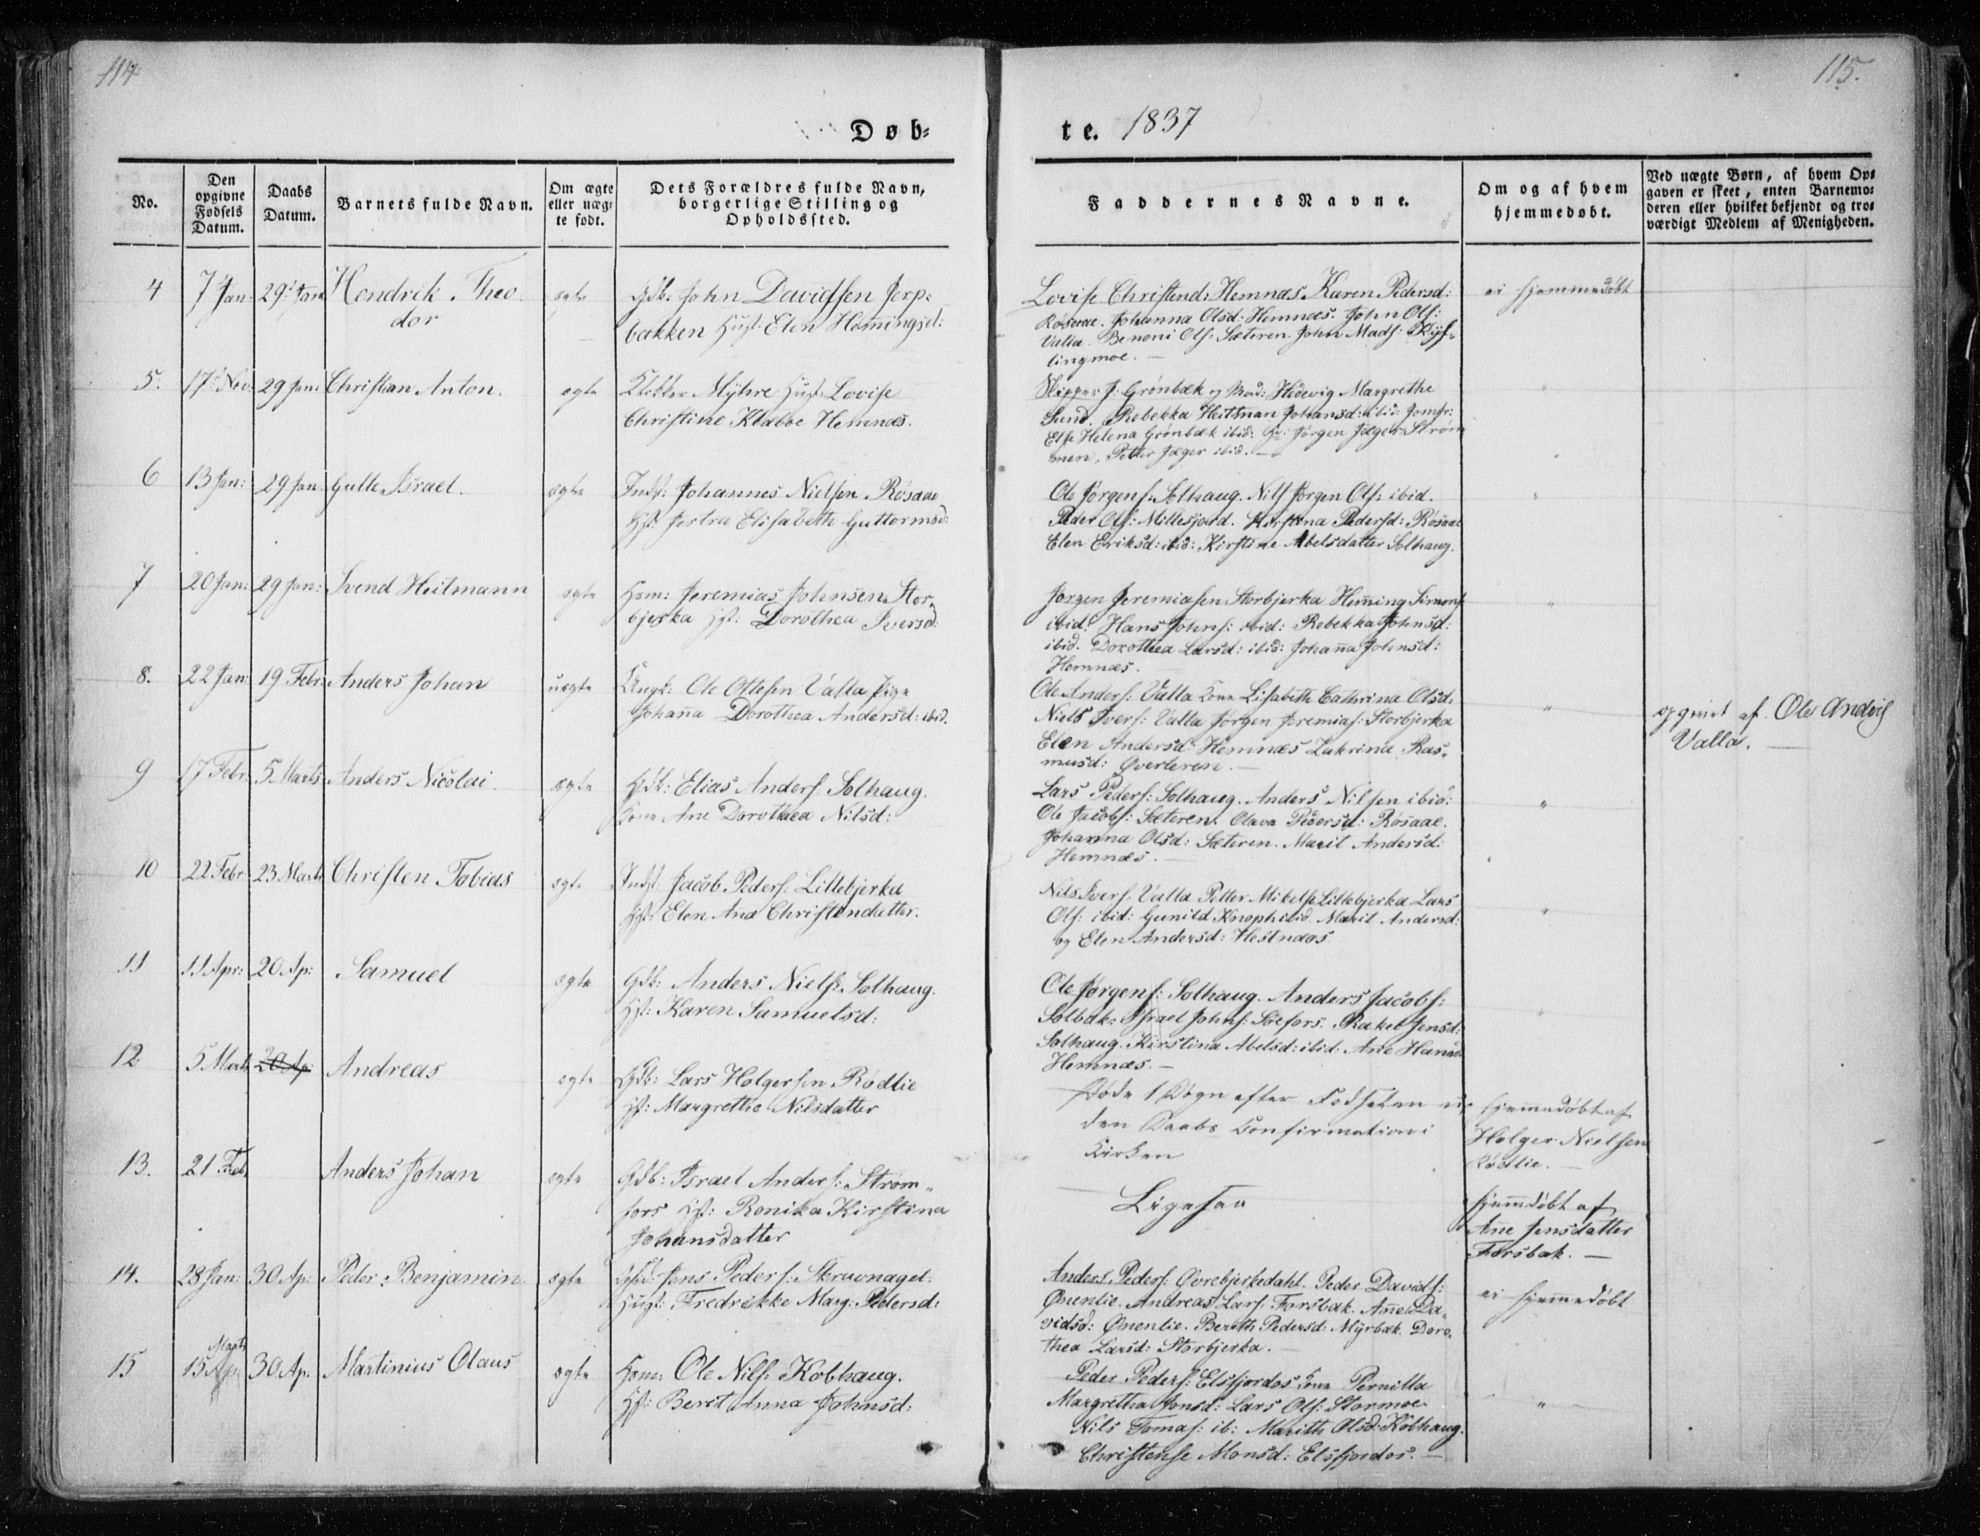 114
115.
Døb-
te. 1837
No.
Den opgivne Fødsels Datum.
Daabs Datum.
Barnets fulde Navn.
Om ægte eller uægte født.
Dets Forældres fulde Navn, borgerlige Stilling og Opholdssted.
Faddernes Navne.
Om og af hvem hjemmedøbt.
Ved uægte Børn, af hvem Opgaven er skeet, enten Barnemoderen eller hvilket bekjendt og troværdigt Medlem af Menigheden.
4 7 Jan: 29 Jan Hendrik Theo
dor
ægte
Gdb. John Davidsen Jerp-
bakken Hust: Elen Hemingsd:
Lovise Christend: Hemnæs. Karen Pedersd:
Røsaae. Johanna Olsd: Hemnæs. John Ols:
Valla. Benoni Ols: Sæteren. John Mads:
lingmoe. —
ei hjemmedøbt
5. 17 Nov. 29 Jan: Christian Anton.
ægte
Klokker Myhre Hust. Lovise
Christine Klæboe Hemnæs.
Skipper J. Grønbæk og Mad: Hedevig Margrethe
Sund. Rebekka Heitman Johansd: ibid: Jomfr:
Else Helena Grønbæk ibid: Jørgen Jæger Strøm
men. Petter Jæger ibid. —
6 13 Jan: 29 Jan Gulle Israel.
ægte
Inds: Johannes Nielsen Røsaae
Hst: Elisabeth Guttormsd:
Ole Jørgens. Solhaug. Nils Jørgen Ols: ibid.
Peder Ols: Millesjord. Kirstina Pedersd: Røsaae
Elen Eriksd: ibid: Kirstine Abelsdatter Solhaug.
7 20 Jan: 29 Jan: Svend Heitmann
ægte
Hsm: Jeremias Johnsen Stor-
bjerka Hst: Dorothea Iversd:
Jørgen Jeremiasen Storbjerka Heming Simons:
ibid: Hans Johns: ibid: Rebekka Johnsd:
ibid. Dorothea Larsd: ibid: Johana Johnsd:
Hemnæs.
8. 22 Jan: 19 Febr. Anders Johan
uægte
Ungk: Ole Oltesen Valla Pige
Johana Dorothea Andersd: ibid.
Ole Anders: Valla Kone Lisabeth Cathrina Olsd:
Niels Ivers: Valla Jørgen Jeremias: Storbjerka
Elen Andersd: Hemnæs Zakrina Ras-
musd: Øverleren. —
opgivet af Ole Andvig
Valla. —
9 17 Febr. 5 Marts Anders Nicolai.
ægte
Gdb: Elias Anders. Solhaug.
Kone Ane Dorothea Nilsd:
Lars Peders: Solhaug. Anders Nilsen ibid:
Ole Jacobs: Sæteren. Olava Pedersd: Røsaae.
Johanna Olsd: Sæteren. Marit Andersd:
Hemnæs. —
10 22 Febr. 23 Marts Christen Tobias
ægte
Inds: Jacob Peders: Lillebjerka
Hst: Elen Ana Christendatter.
Nils Ivers. Valla Petter Mikels Lillebjerka Lars
Ols: ibid: Gunild Knoph ibid. Marit Andersd:
og Elen Andersd: Hestnæs
11 11 Apr: 20 Ap: Samuel
ægte
Gdb: Anders Niels: Solhaug.
Hst: Karen Samuelsd:
Ole Jørgens: Solhaug. Anders Jacobs:
Solbak: Israel Johns: Storfors. Rakel Jensd:
Solhaug. Kirstina Abelsd: ibid: Ane Hansd:
Hemnæs. —
12 5 Marts 20 Ap: Andreas
ægte
Gdb: Lars Holgersen Rødlie
Hst: Margrethe Nilsdatter
Døde 1 Døgn efter Fødselen u-
den Daabs Confirmation i
Kirken
hjemmedøbt af
Holger Nielsen
Rødlie. —
13. 21 Feb. Anders Johan
ægte
Gdb: Israel Anders: Strøm-
fors Hst: Ronika Kirstina
Johansdatter
Ligesaa
hjemdøbt af
Ane Jensdatter
Forsbak. —
14. 28 Jan: 30 Ap: Peder Benjamin
ægte
Jens Peders: Skruvnaget:
Hust: Fredrikke Marg: Pedersd:
Anders Peders: Øvrebjerkedahl. Peder Davids:
Ønenlie. Andreas Lars: Forsbak. Ane Da-
vidsd: Ønenlie. Bereth Pedersd: Myrbæk. Doro-
thea Larsd: Storbjerka.
ei hjemmedøbt
15 Marts
15 Ap: 30 Ap: Martinius Olaus
ægte
Hsm: Ole Nils. Kobhaug.
Hst: Berit Anna Johnsd:
Peder Peders: Elsfjordos Kone Pernilla
Margretha Jonsd: Lars Ols: Stormoe
Nils Tomas: ib: Marith Olsd: Kobhaug.
Christense Monsd: Elsfjordos. —